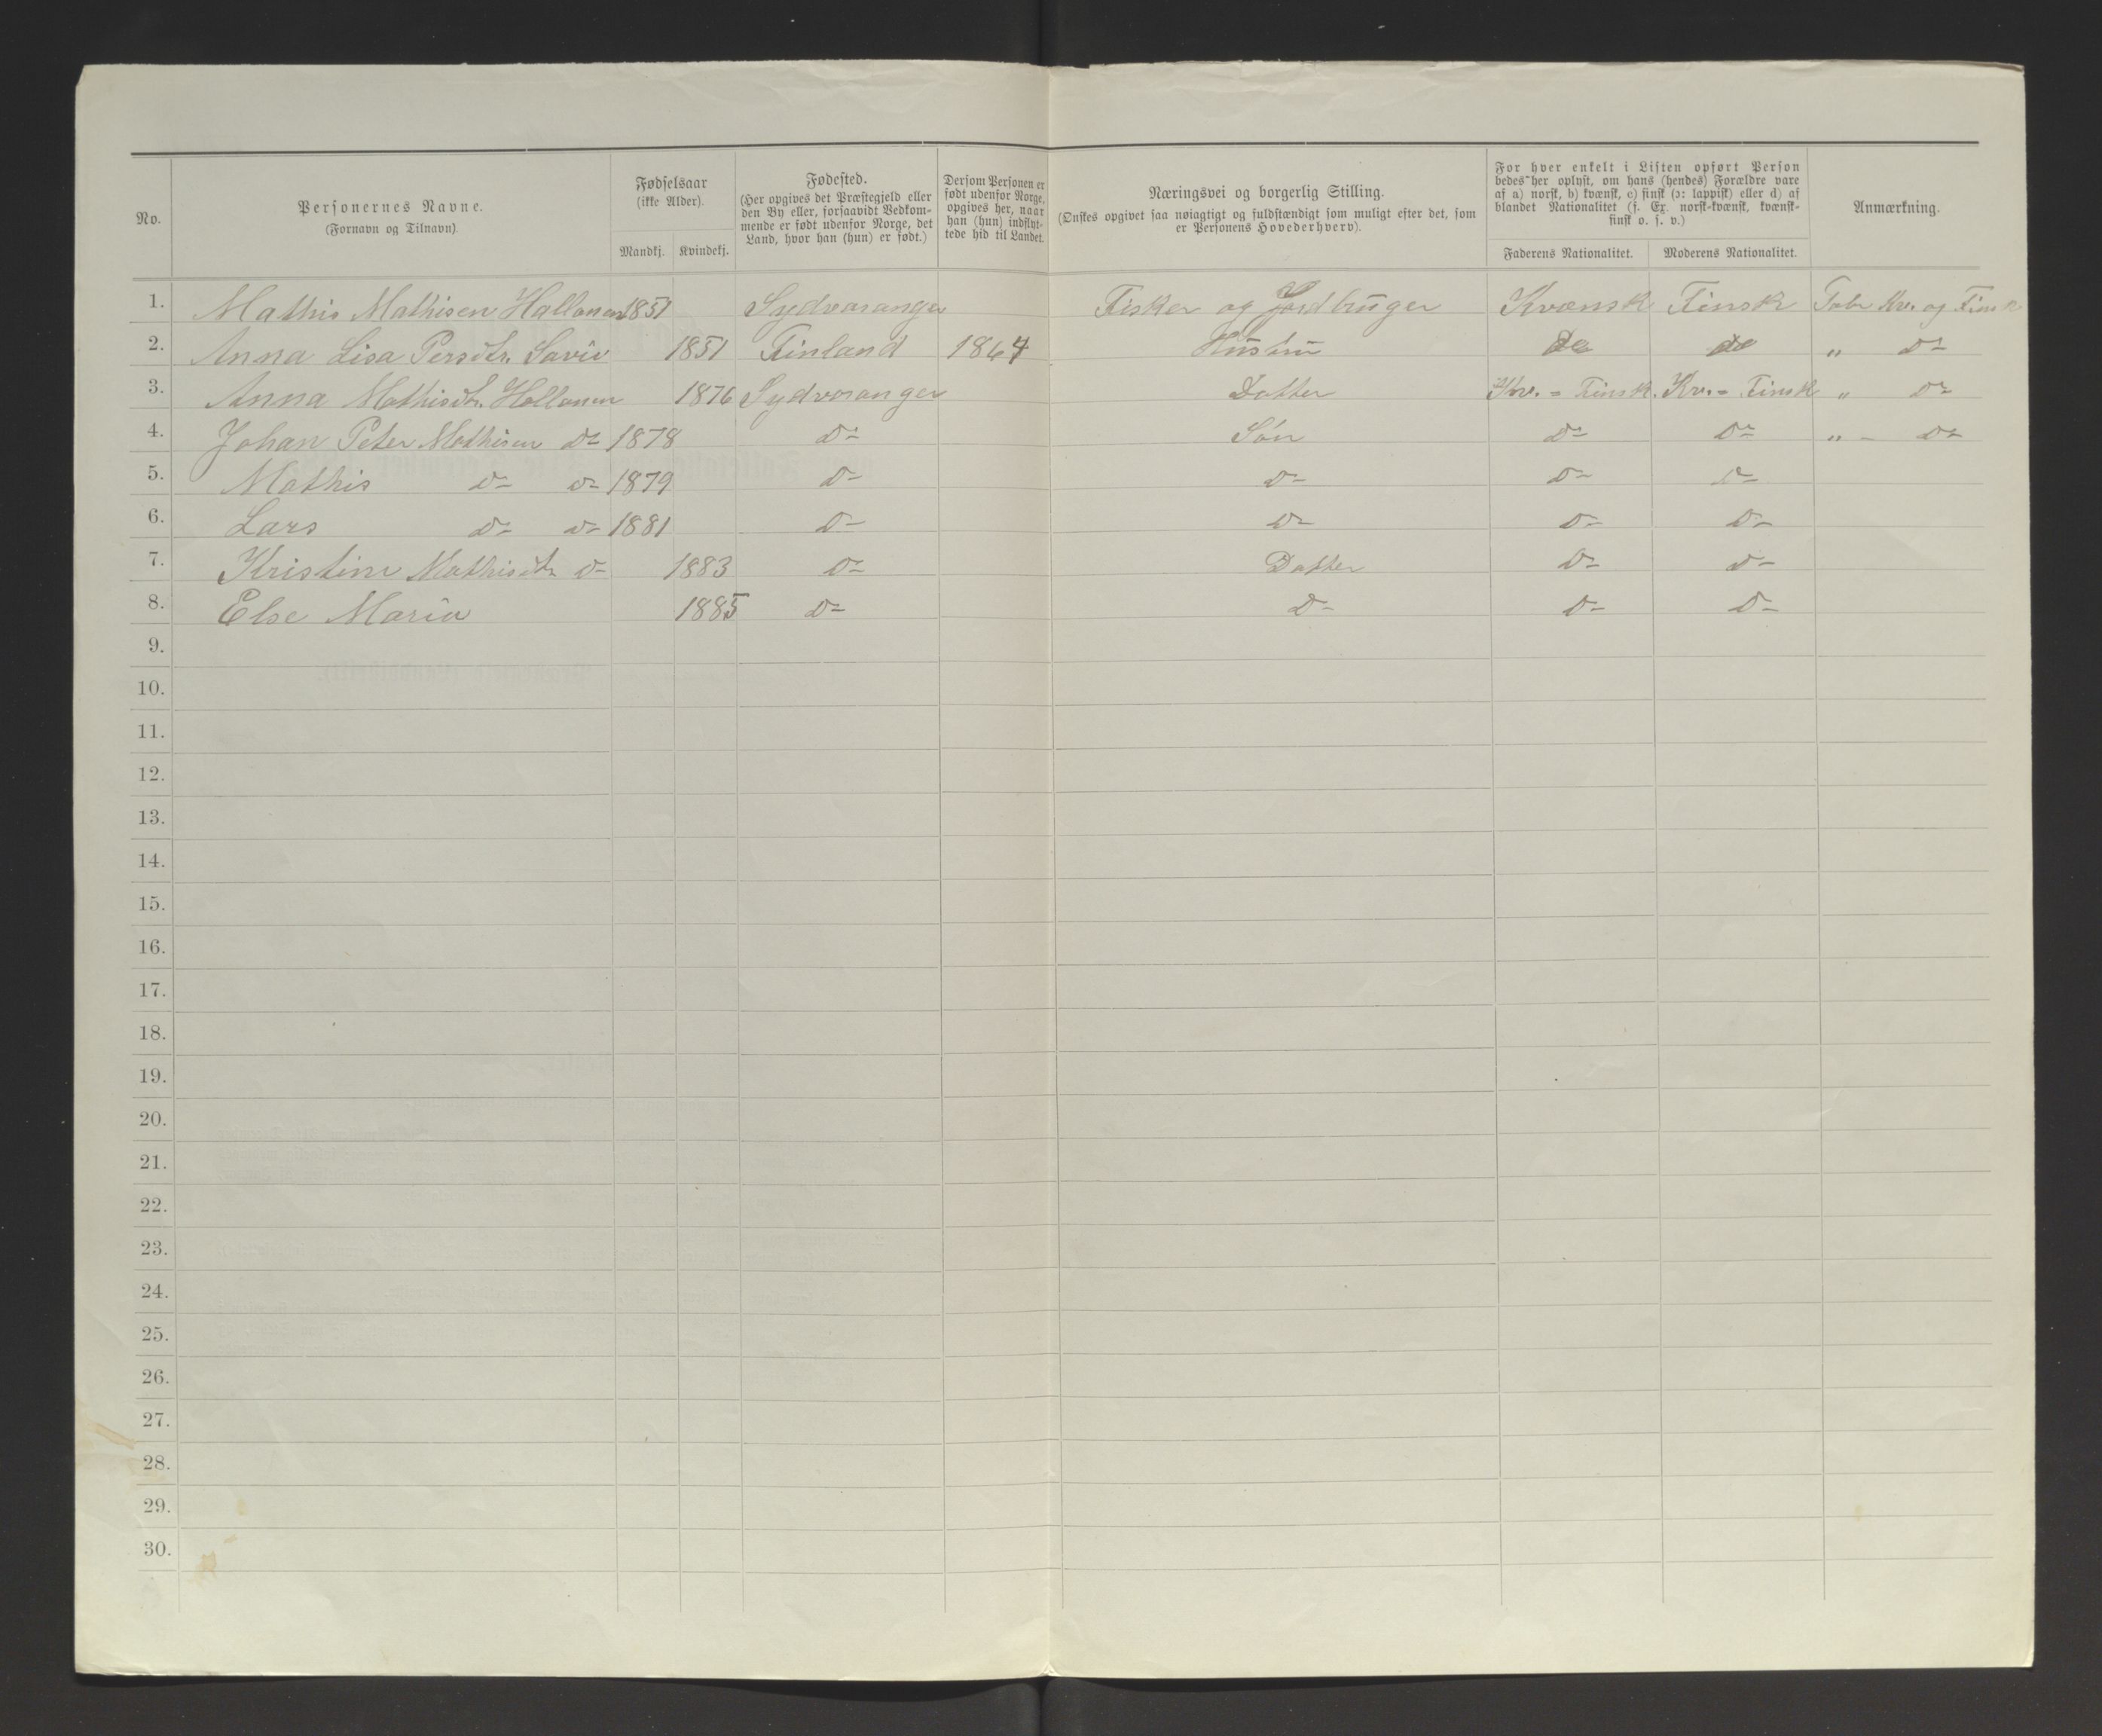 No.
Personernes Navne.
(Fornavn og Tilnavn).
Fødselsaar
(ikke Alder).
Mandkj. Kvindekj.
Fødested.
(Her opgives det Præstegjeld eller
den By eller, forsaavidt Vedkom-
mende er født udenfor Norge, det
Land, hvor han (hun) er født.)
Dersom Personen er
født udenfor Norge,
opgives her, naar
han (hun) indflyt-
tede hid til Landet.
Næringsvei og borgerlig Stilling.
(Ønskes opgivet saa nøiagtigt og fuldstændigt som muligt efter det, som
er Personens Hovederhverv).
For hver enkelt i Listen opført Person
bedes her oplyst, om hans (hendes) Forældre vare
af a) norsk, b) kvænsk, c) finsk (ɔ: lappisk) eller d) af
blandet Nationalitet (f. Ex. norsk-kvænsk, kvænsk-
finsk o. s. v.)
Faderens Nationalitet. Moderens Nationalitet.
Anmærkning.
1. Mathis Mathisen Hallonen 1851 Sydvaranger Fisker og Jordbruger Kvænsk Finsk Taler Kv. og Finsk
2. Anna Lisa Persdtr. Savio 1851 Finland 1864 Hustru do do " do
3. Anna Mathisdtr. Hallonen 1876 Sydvaranger Datter Kv. = Finsk. Kv. = Finsk " do
4. Johan Peter Mathisen do 1878 do Søn do do " - do
5. Mathis do do 1879 do do do do
6. Lars do do 1881 do do do do
7. Kristine Mathisdtr do 1883 do Datter do do
8. Else Maria 1885 do do do do
9.
10.
11.
12.
13.
14.
15.
16.
17.
18.
19.
20.
21.
22.
23.
24.
25.
26.
27.
28.
29.
30.